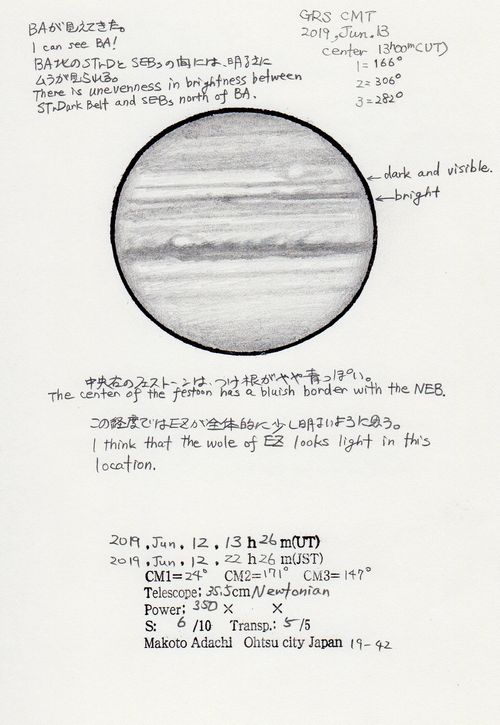 BAが見えてきた。
I can see BA!
BA北のSTrDとSEBsの間には、明るさに
ムラが見られる。
There is unevenness in brightness between
STrDark Belt and SEBs north of BA.
GRS CMT
2019, Jun. 13
center 13h00m(UT)
1=166°
2=306°
3=282°
dark and visible.
bright
中央右のフェストーンは、つけ根がやや青っぽい。
The center of the festoon has a bluish border with the NEB.
この経度ではEZが全体的に少し明るいように思う。
I think that the wole of EZ looks light in this
location.
2019, Jun. 12, 13 h 26 m(UT)
2019, Jun. 12, 22 h 26 m(JST)
CM1=24° CM2=171° CM3=147°
Telescope: 35.5cm Newtonian
Power: 350 × ×
S: 6 /10 Transp.: 5 /5
Makoto Adachi Ohtsu city Japan 19-42